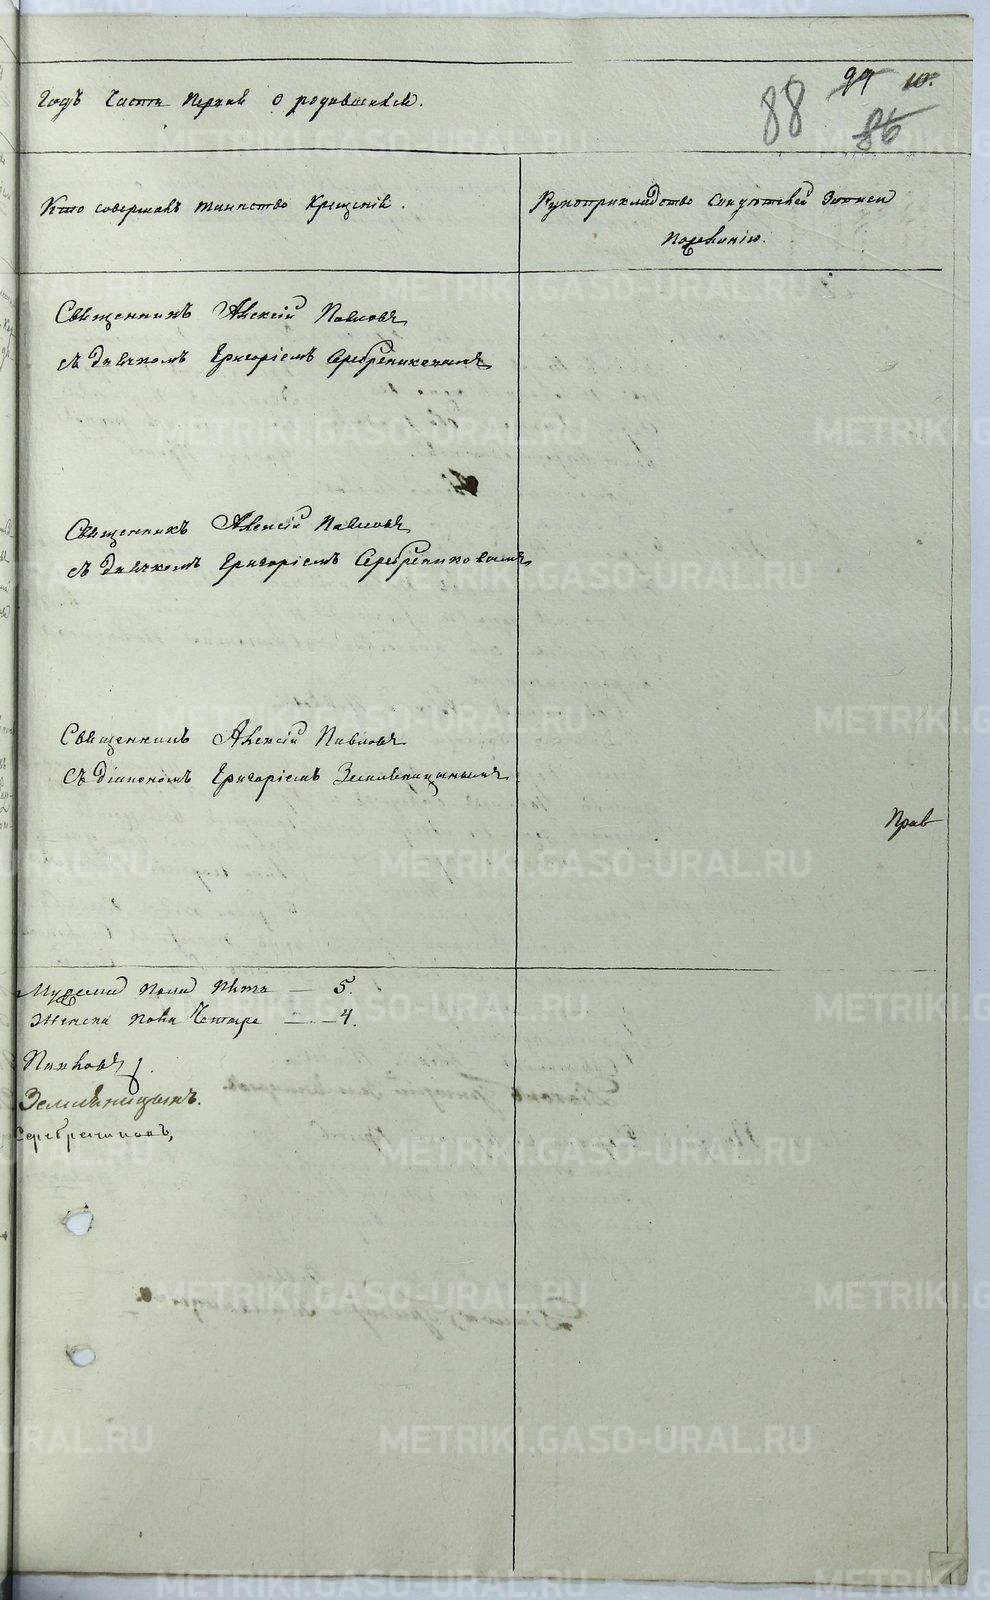 Годъ Часть Первая О родившихся.
88 99 10.
86
Кто совершалъ таинство Крещенія.
Рукоприкладство Свидѣтелей Записи
по желанію.
Священникъ Алексій Павловъ
съ Дьячкомъ Григоріемъ Серебрениковымъ
Священникъ Алексій Павловъ
съ Дьячкомъ Григоріемъ Серебрениковымъ
Священникъ Алексій Павловъ
Съ Діакономъ Григоріемъ Земляницынымъ
Прав
Мужеска пола Пять — 5.
Женска пола Четыре — 4.
Павловъ
Земляницынъ.
Серебрениковъ,
METRIKI.GASO-URAL.RU